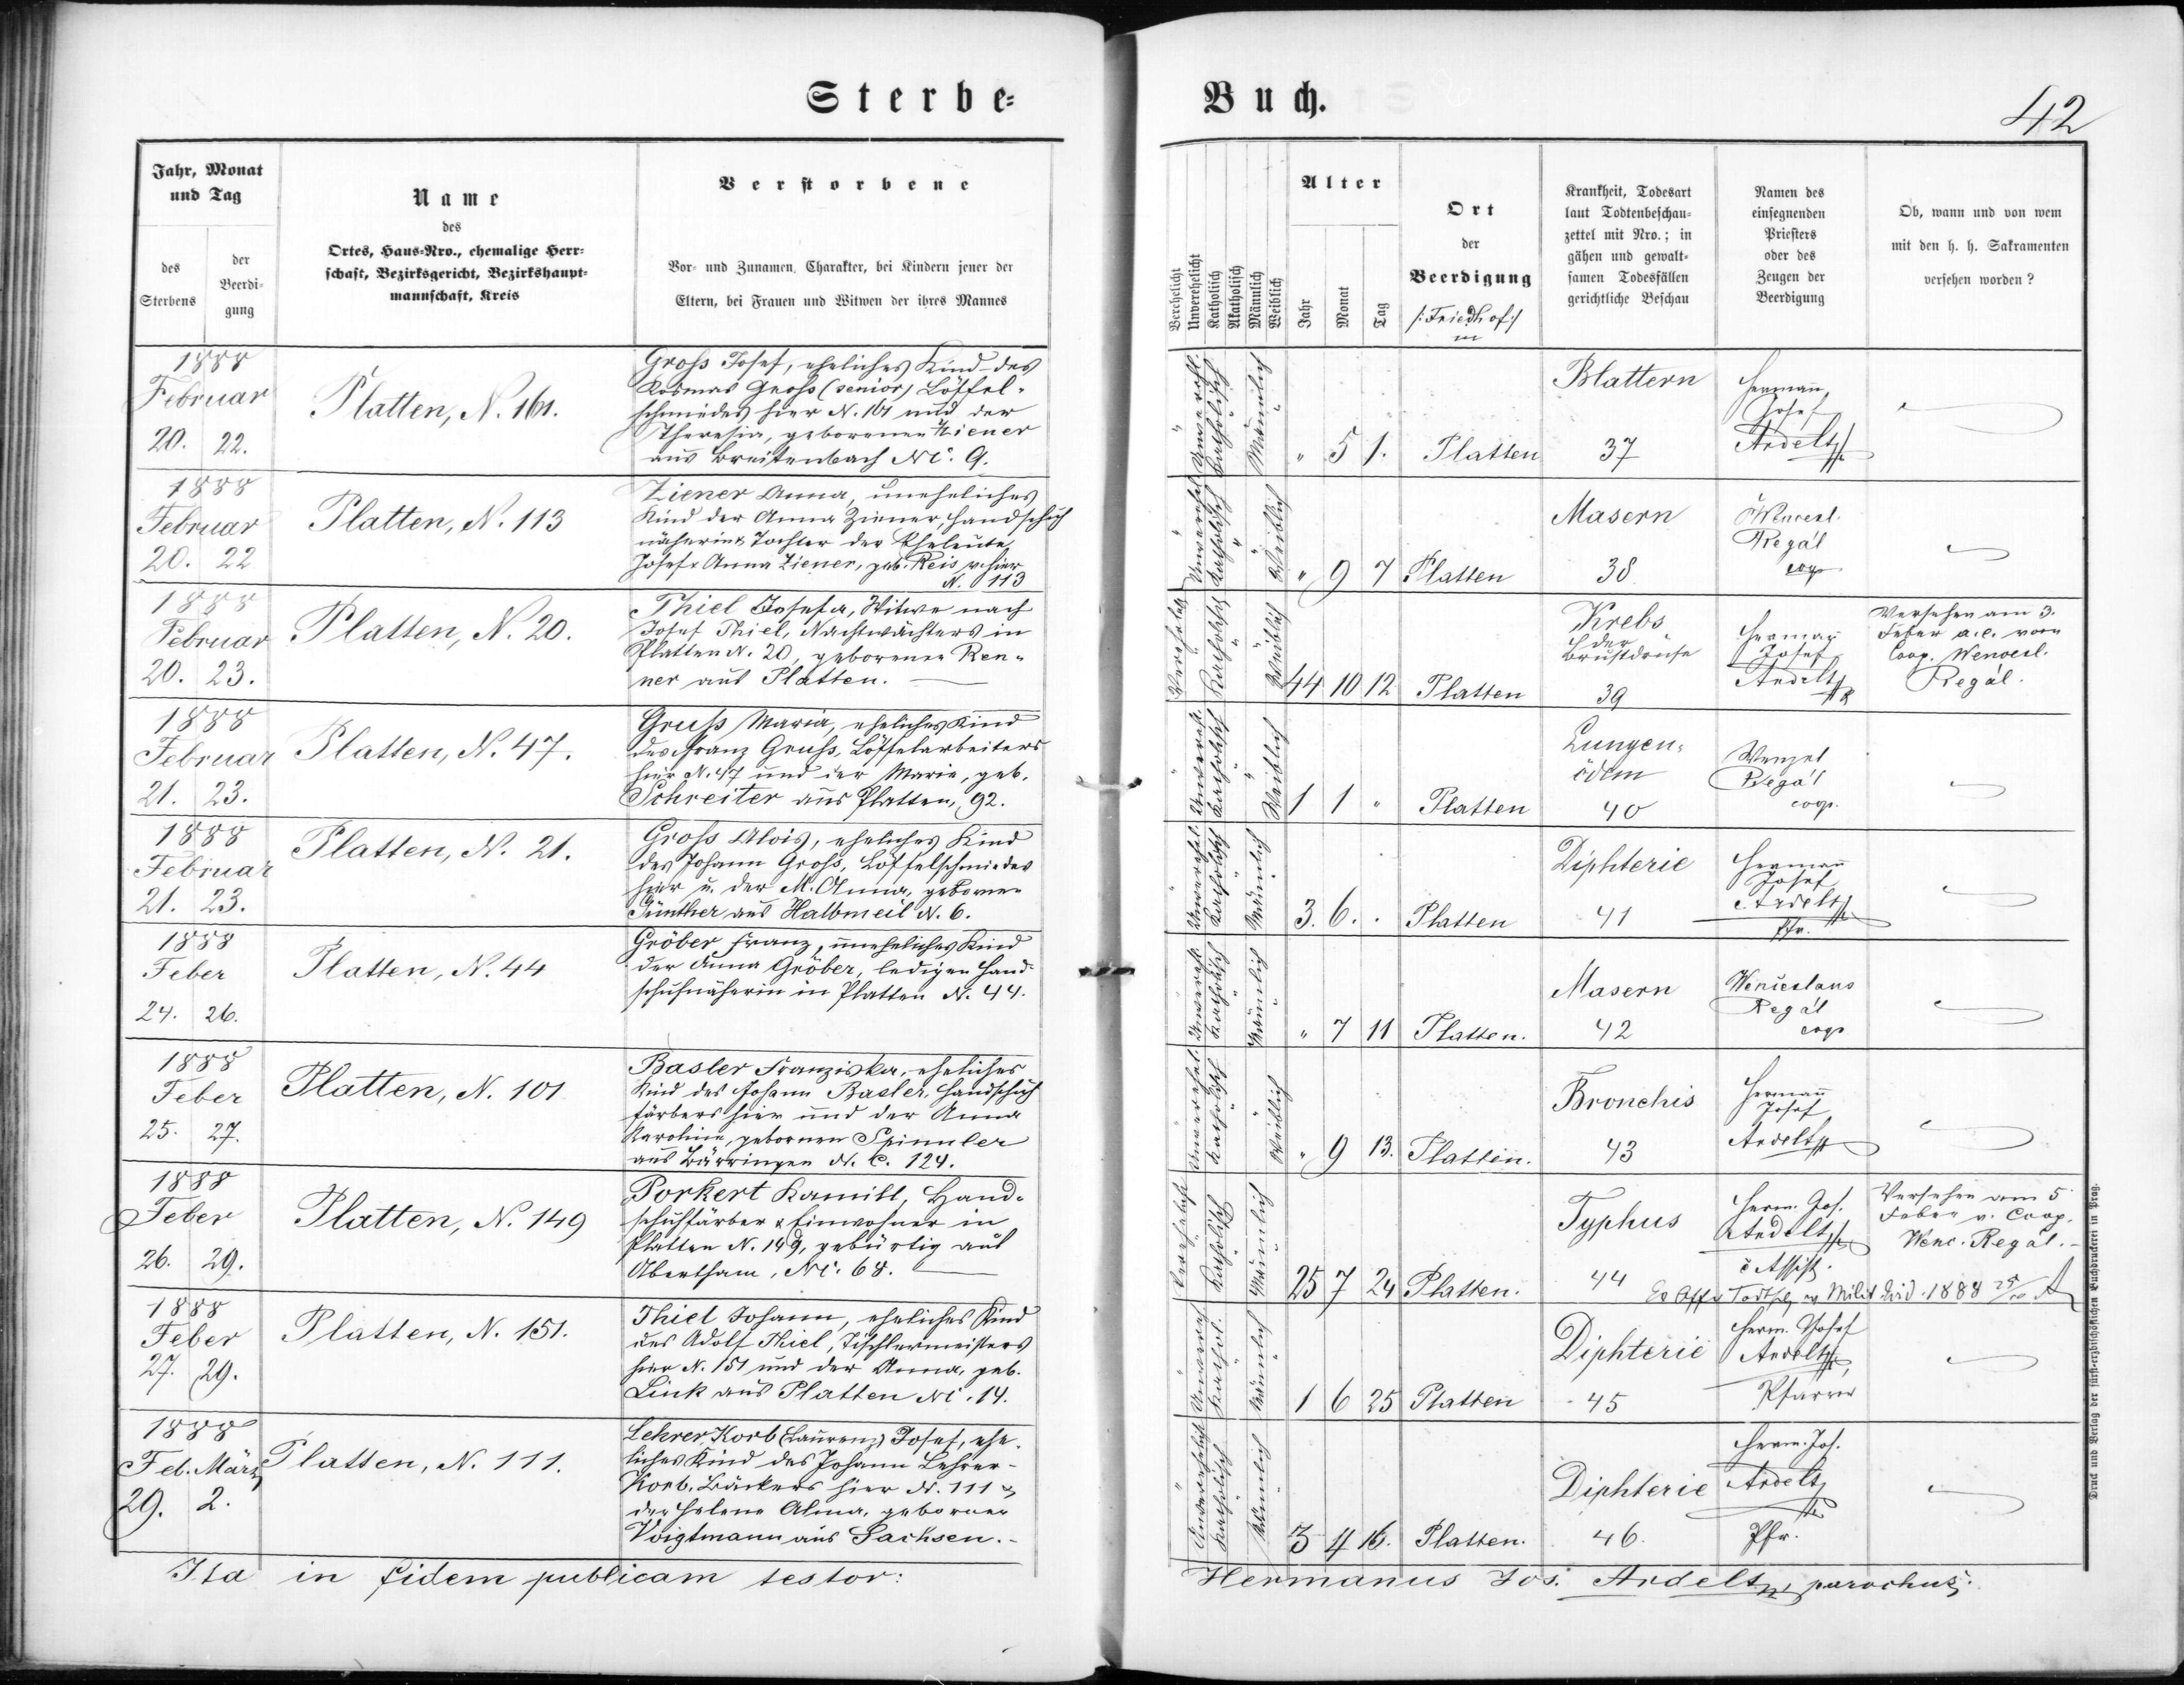 Sterbe-
Jahr, Monat
und Tag
des
Sterbens
der
Beerdi-
gung
Name
des
Ortes, Haus-Nro., ehemalige Herr-
schaft, Bezirksgericht, Bezirkshaupt-
mannschaft, Kreis
Verstorbene
Vor- und Zunamen, Charakter, bei Kindern jener der
Eltern, bei Frauen und Witwen der ihres Mannes
1888
Februar
20. 22.
Platten, N. 161.
Groß Josef, eheliches Kind des
Kosmas Groß (senior) Löffel-
schmiedes hier N. 161 und der
Theresia, geborenen Ziener
aus Breitenbach NC. 9.
1888
Februar
20. 22
Platten, N. 113
Ziener Anna, uneheliches
Kind der Anna Ziener, Handschuh
näherin & Tochter der Eheleute
Josef & Anna Ziener, geb. Reis v. hier
N. 113
1888
Februar
20. 23.
Platten, N. 20.
Thiel Josefa, Witwe nach
Josef Thiel, Nachtwächters in
Platten N. 20, geborene Ren-
ner aus Platten.
1888
Februar
21. 23.
Platten, N. 47.
Gruß Maria, eheliches Kind
des Franz Gruß, Löffelarbeiters
hier N. 47 und der Marie, geb.
Schreiter aus Platten, 92.
1888
Februar
21. 23.
Platten, N. 21.
Groß Alois, eheliches Kind
des Johann Groß, Löffelschmiedes
hier u. der M. Anna, geborner
Günther aus Halbmeil N. 6.
1888
Feber
24. 26.
Platten, N. 44
Gröber Franz, uneheliches Kind
der Anna Gröber, ledigen Hand-
schuhnäherin in Platten N. 44.
1888
Feber
25. 27.
Platten, N. 101
Basler Franziska, eheliches
Kind des Johann Basler, Handschuh
färbers hier und der Anna
Karolina, gebornen Spinnler
aus Bärringen N. C. 124.
1888
Feber
26. 29.
Platten, N. 149
Porkert Kamill, Hand-
schuhfärber & Einwohner in
Platten N. 149, gebürtig aus
Abertham, NC. 68.
1888
Feber
27. 29.
Platten, N. 151.
Thiel Johann, eheliches Kind
des Adolf Thiel, Tischlermeisters
hier N. 151 und der Anna, geb.
Link aus Platten NC. 14.
1888
Feb. März
29. 2.
Platten, N. 111.
Lehrer Korb (Laurenz) Josef, ehe-
liches Kind des Johann Lehrer-
Korb, Bäckers hier N. 111 &
der Helene Alma, geborner
Voigtmann aus Sachsen.-
Ita in fidem publicam testor:
Buch.
42
Verehelicht
Unverehelicht
Katholisch
Akatholisch
Männlich
Weiblich
Alter
Jahr
Monat
Tag
Ort
der
Beerdigung
/: Friedhof :/
in
Krankheit, Todesart
laut Todtenbeschau-
zettel mit Nro.; in
gähen und gewalt-
samen Todesfällen
gerichtliche Beschau
Namen des
einsegnenden
Priesters
oder des
Zeugen der
Beerdigung
Ob, wann und von wem
mit den h. h. Sakramenten
versehen worden?
" Unverehl. Katholisch Männlich " 5 1. Platten
Blattern
37
Hermann
Josef
Ardelt
" Unverehel. Katholisch " Weiblich " 9 7 Platten
Masern
38
Wencesl.
Regál
coop
Verehelicht Katholisch " Weiblich 44 10 12 Platten
Krebs
der
Brustdrüse
39
Herman
Josef
Ardelt
Versehen am 3.
Feber a. c. vom
Coop. Wencesl.
Regál.
" Unverehl. Katholisch " Weiblich 1 1 " Platten
Lungen-
ödem
40
Wenzel
Regál
coop.
" Unverehel. Katholisch Männlich 3. 6. . Platten
Diphterie
41
Hermann
Josef
Ardelt
Pfr.
" Unverehl. Katholisch Männlich " 7 11 Platten.
Masern
42
Wenceslaus
Regál
coop
" Unverehel. Katholisch " Weiblich " 9 13. Platten.
Bronchis
43
Hermann
Josef
Ardelt
Verehelicht Katholisch Männlich 25 7 24 Platten.
Typhus
44
Herm. Jos.
Ardelt
c Assist.
Versehen am 5
Feber v. Coop.
Wenc. Regál.-
Ex Offo Todtsch. Milit 1888
" Katholisch Männlich 1 6 25 Platten
Diphterie
45
Herm. Josef
Ardelt
Pfarrer
" Unverehelicht Katholisch Männlich 3 4 16. Platten.
Diphterie
46.
Herm. Jos.
Ardelt
Pfr.
Hermanus Jos. Ardelt, parochus.
Druck und Verlag der fürst-erzbischöflichen Buchdruckerei in Prag.